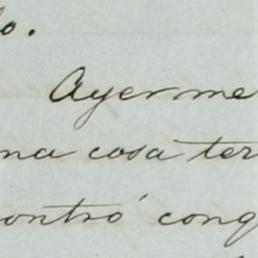 lo.
Ayer me
na cosa ter
ontró conq